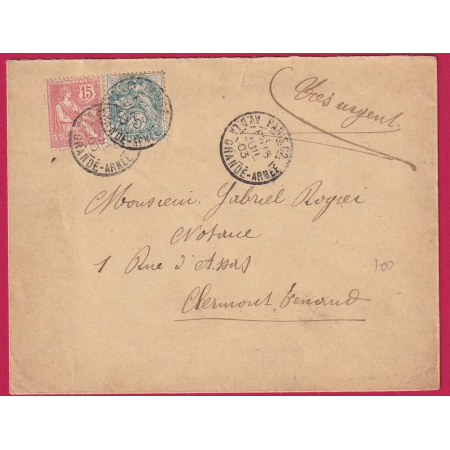 15
5
Très urgent
PARIS 62
AV. DE LA GRANDE-ARMÉE
JUIL
03
GRANDE-ARMÉE
Monsieur Gabriel Rogier
Notaire
1 Rue d'Assas
Clermont Ferrand
100